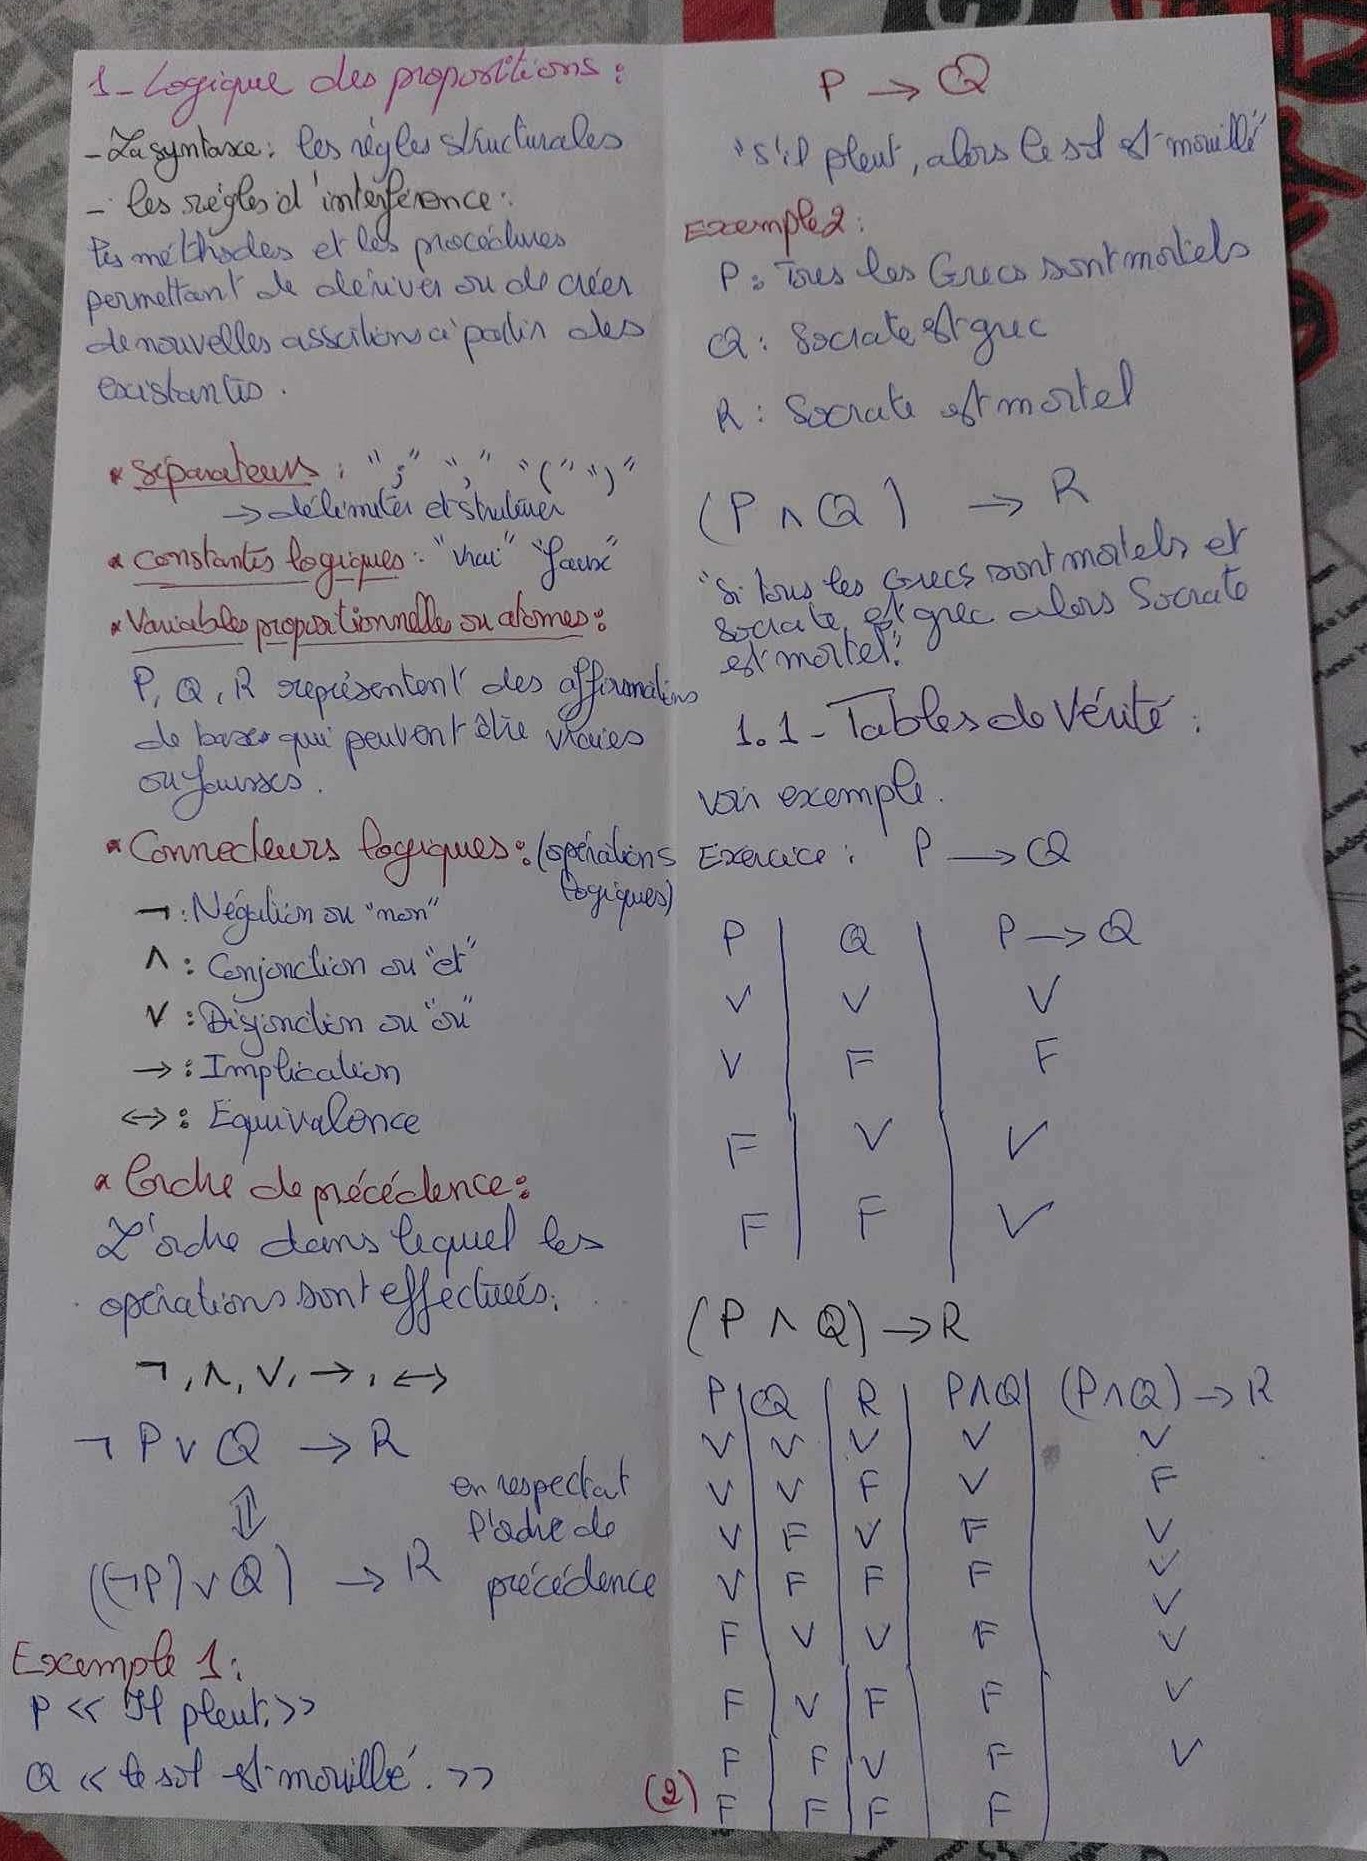 1- Logique des propositions :
- La syntaxe : les règles structurales
- les règles d'interférence :
les méthodes et les procédures
permettant de dériver ou de créer
de nouvelles assertions à partir des
existantes .
* Séparateurs : ";" "," "(" ")"
→ délimiter et structurer
* Constantes logiques : "vrai" "faux"
* Variables propositionnelles ou atomes :
P, Q, R représentent des affirmations
de bases qui peuvent être vraies
ou fausses .
* Connecteurs logiques : (opérations
logiques)
¬ : Négation ou "non"
∧ : Conjonction ou "et"
∨ : Disjonction ou "ou"
→ : Implication
↔ : Equivalence
* Ordre de précédence :
L'ordre dans lequel les
opérations sont effectuées.
¬ , ∧, ∨, → , ↔
¬ P ∨ Q → R
⇕
((¬P) ∨ Q) → R
en respectat
l'ordre de
précédence
Exemple 1 :
P << Il pleut. >>
Q << le sol est mouillé. >>
P → Q
"s'il pleut, alors le sol est mouillé"
Exemple 2 :
P : Tous les Grecs sont mortels
Q : Socrate est grec
R : Socrate est mortel
(P ∧ Q) → R
"Si tous les Grecs sont mortels et
Socrate est grec alors Socrate
est mortel."
1.1 - Tables de Vérité :
voir exemple.
Exercice : P → Q
P | Q | P → Q
V | V | V
V | F | F
F | V | V
F | F | V
(P ∧ Q) → R
P | Q | R | P∧Q | (P∧Q) → R
V | V | V | V | V
V | V | F | V | F
V | F | V | F | V
V | F | F | F | V
V
F | V | V | F | V
F | V | F | F | V
F | F | V | F | V
(2) F | F | F | F |